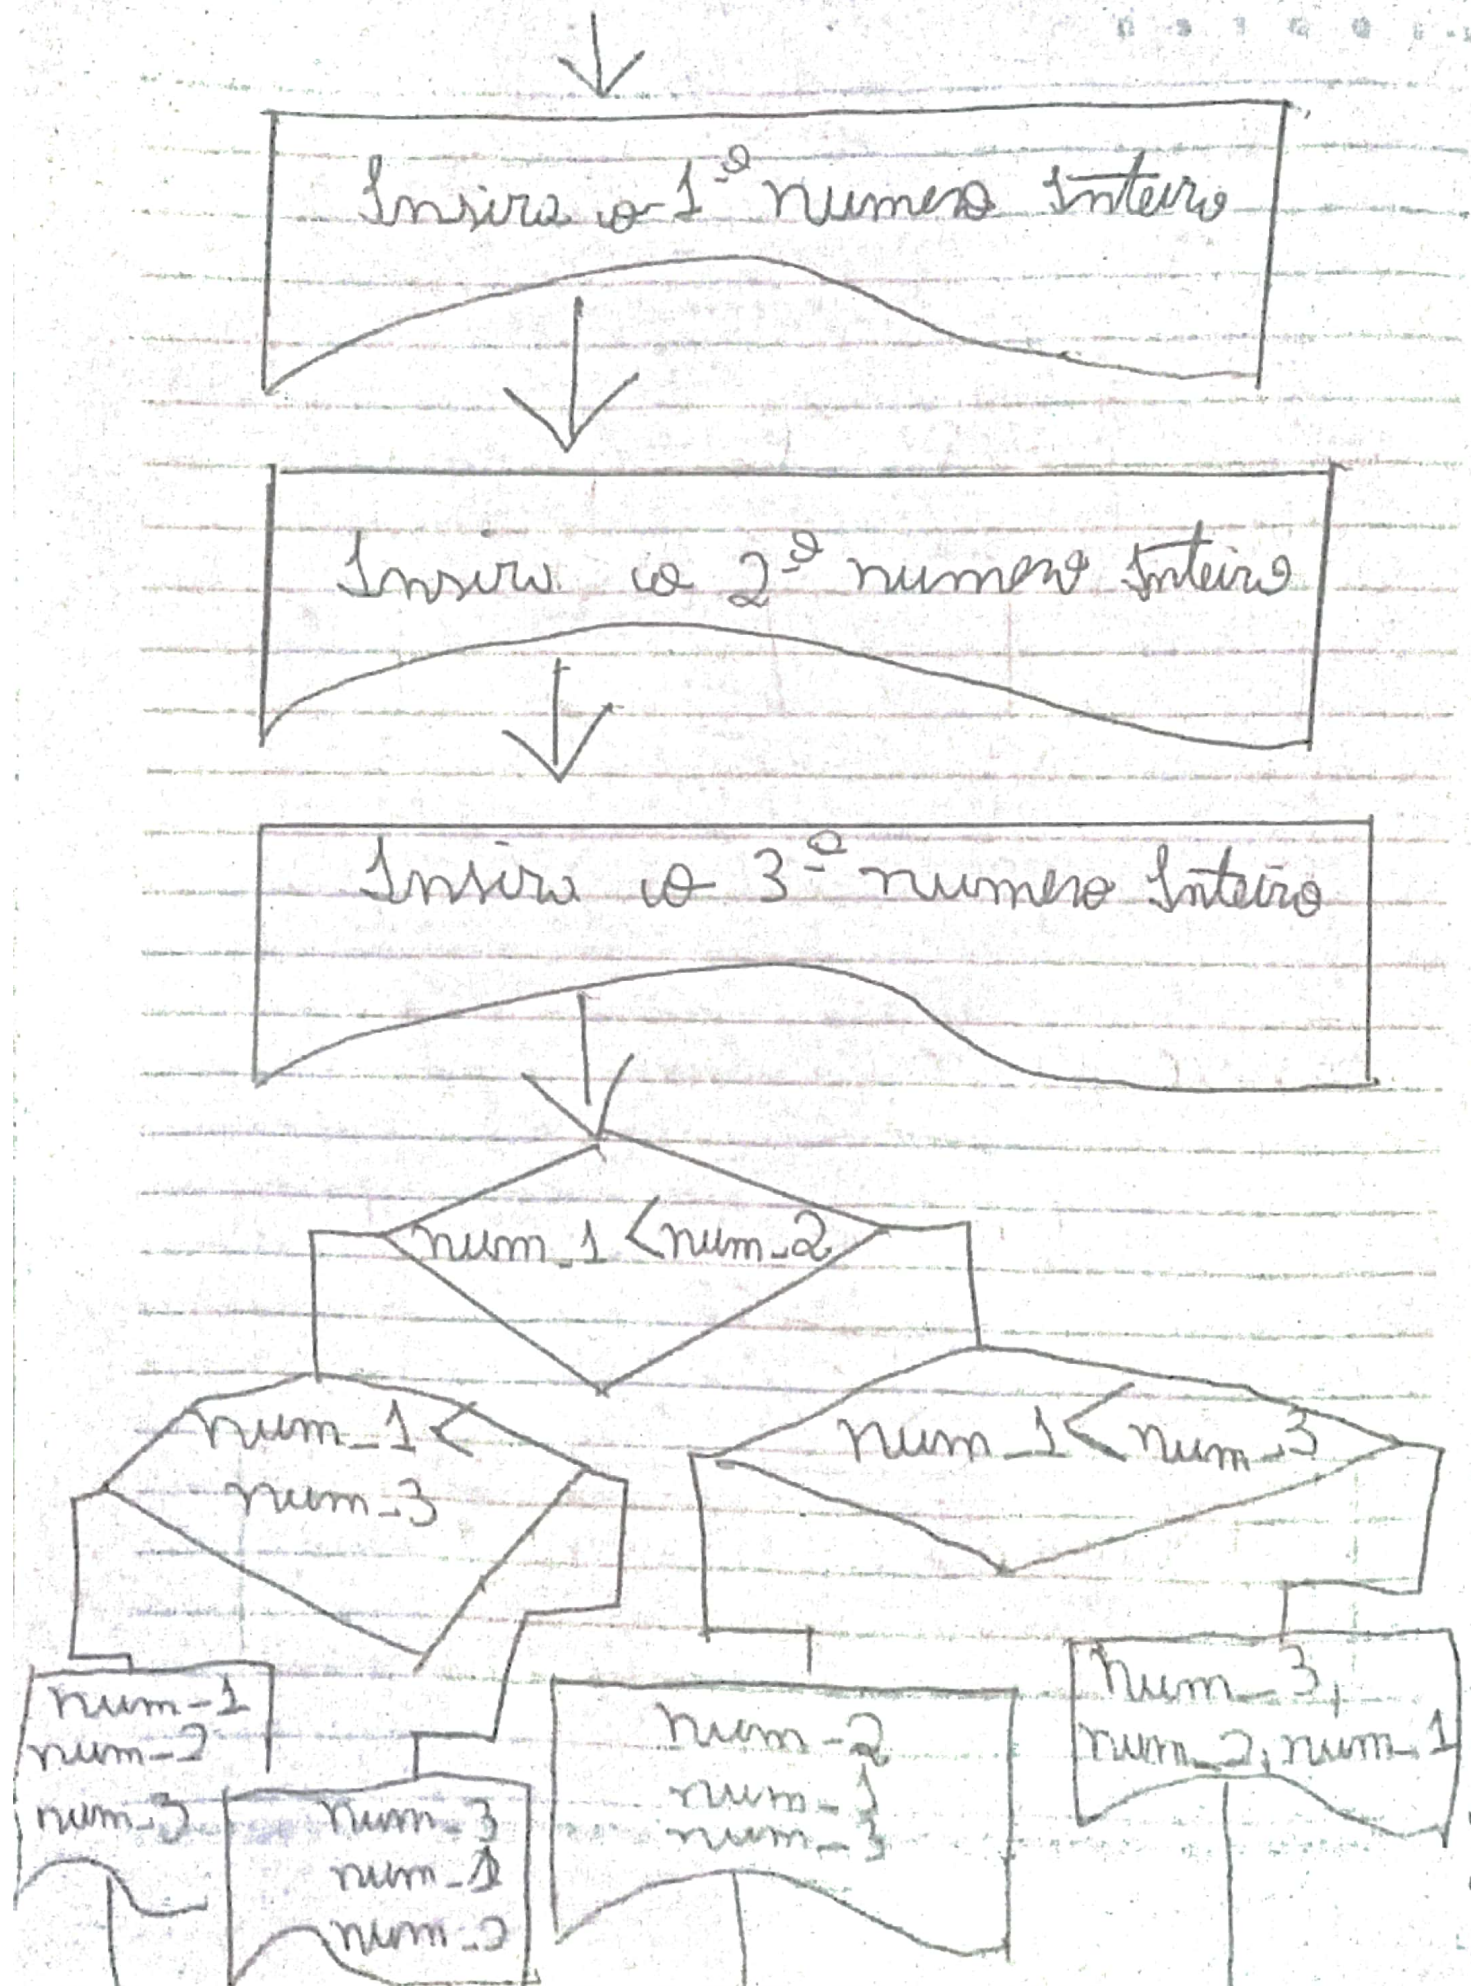 Insira o 1º numero Inteiro
Insira o 2º numero Inteiro
Insira o 3º numero Inteiro
num_1 < num_2
num_1 <
num_3
num_1 < num_3
num_1
num_2
num_3
num_3
num_1
num_2
num_2
num_1
num_3
num_3,
num_2, num_1